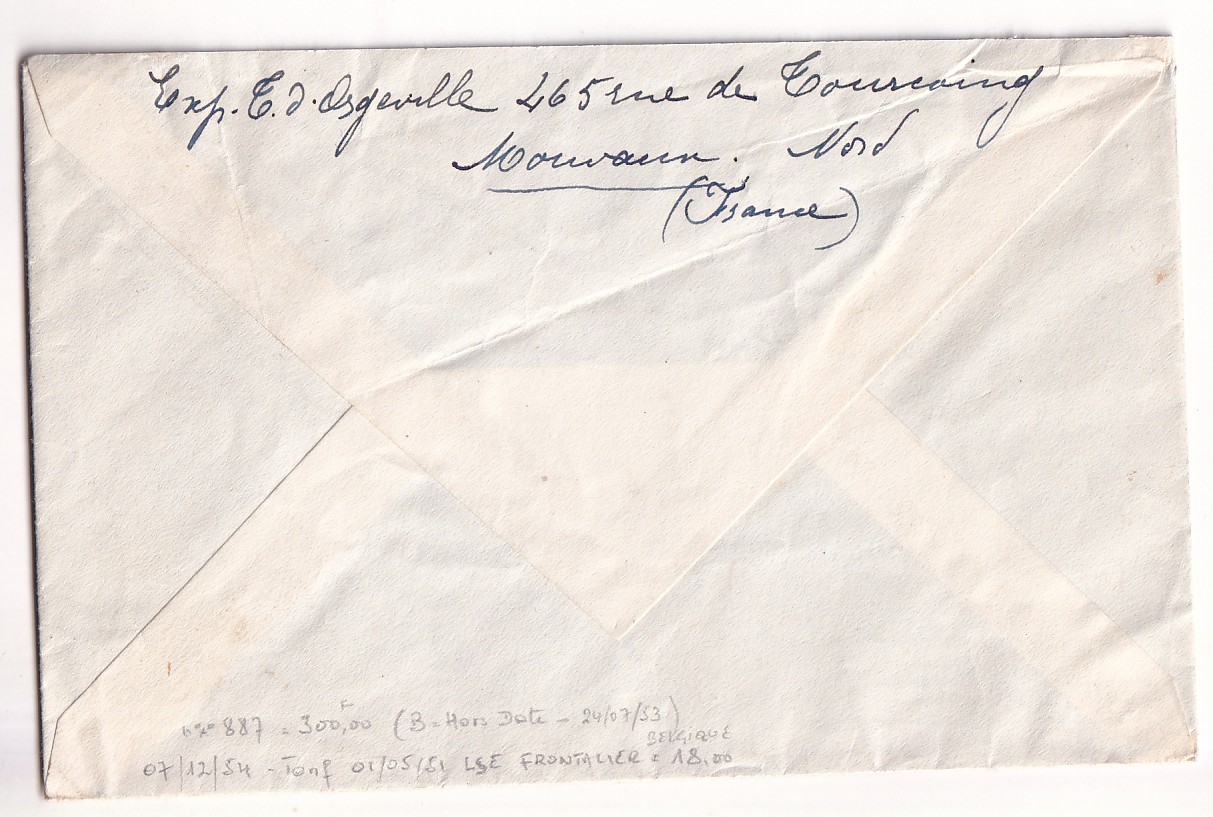 Exp. E. d. Orgeville 265 rue de Tourcoing
Mouvaux. Nord
(France)
n° 887 = 300,00 F (B = Hors Date - 24/07/53)
BELGIQUE
07/12/54 - Tarif 01/05/51 LSE FRONTALIER = 18.00